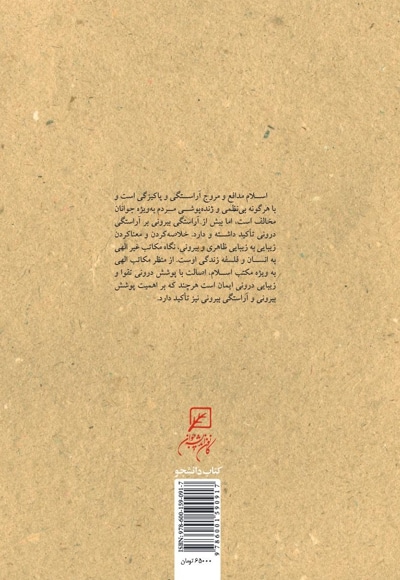 اسلام مدافع و مروج آراستگی و پاکیزگی است و
با هرگونه بی‌نظمی و ژنده‌پوشی مردم به‌ویژه جوانان
مخالف است، اما بیش از آراستگی بیرونی بر آراستگی
درونی تأکید داشته و دارد. خلاصه‌کردن و معناکردن
زیبایی به زیبایی ظاهری و بیرونی، نگاه مکاتب غیر الهی
به انسان و فلسفه زندگی اوست. از منظر مکاتب الهی
به ویژه مکتب اسلام، اصالت با پوشش درونی تقوا و
زیبایی درونی ایمان است هرچند که بر اهمیت پوشش
بیرونی و آراستگی بیرونی نیز تأکید دارد.
کانون اندیشه جوان
کتاب دانشجو
ISBN: 978-600-159-091-7
9786001590917
۶۵۰۰۰ تومان